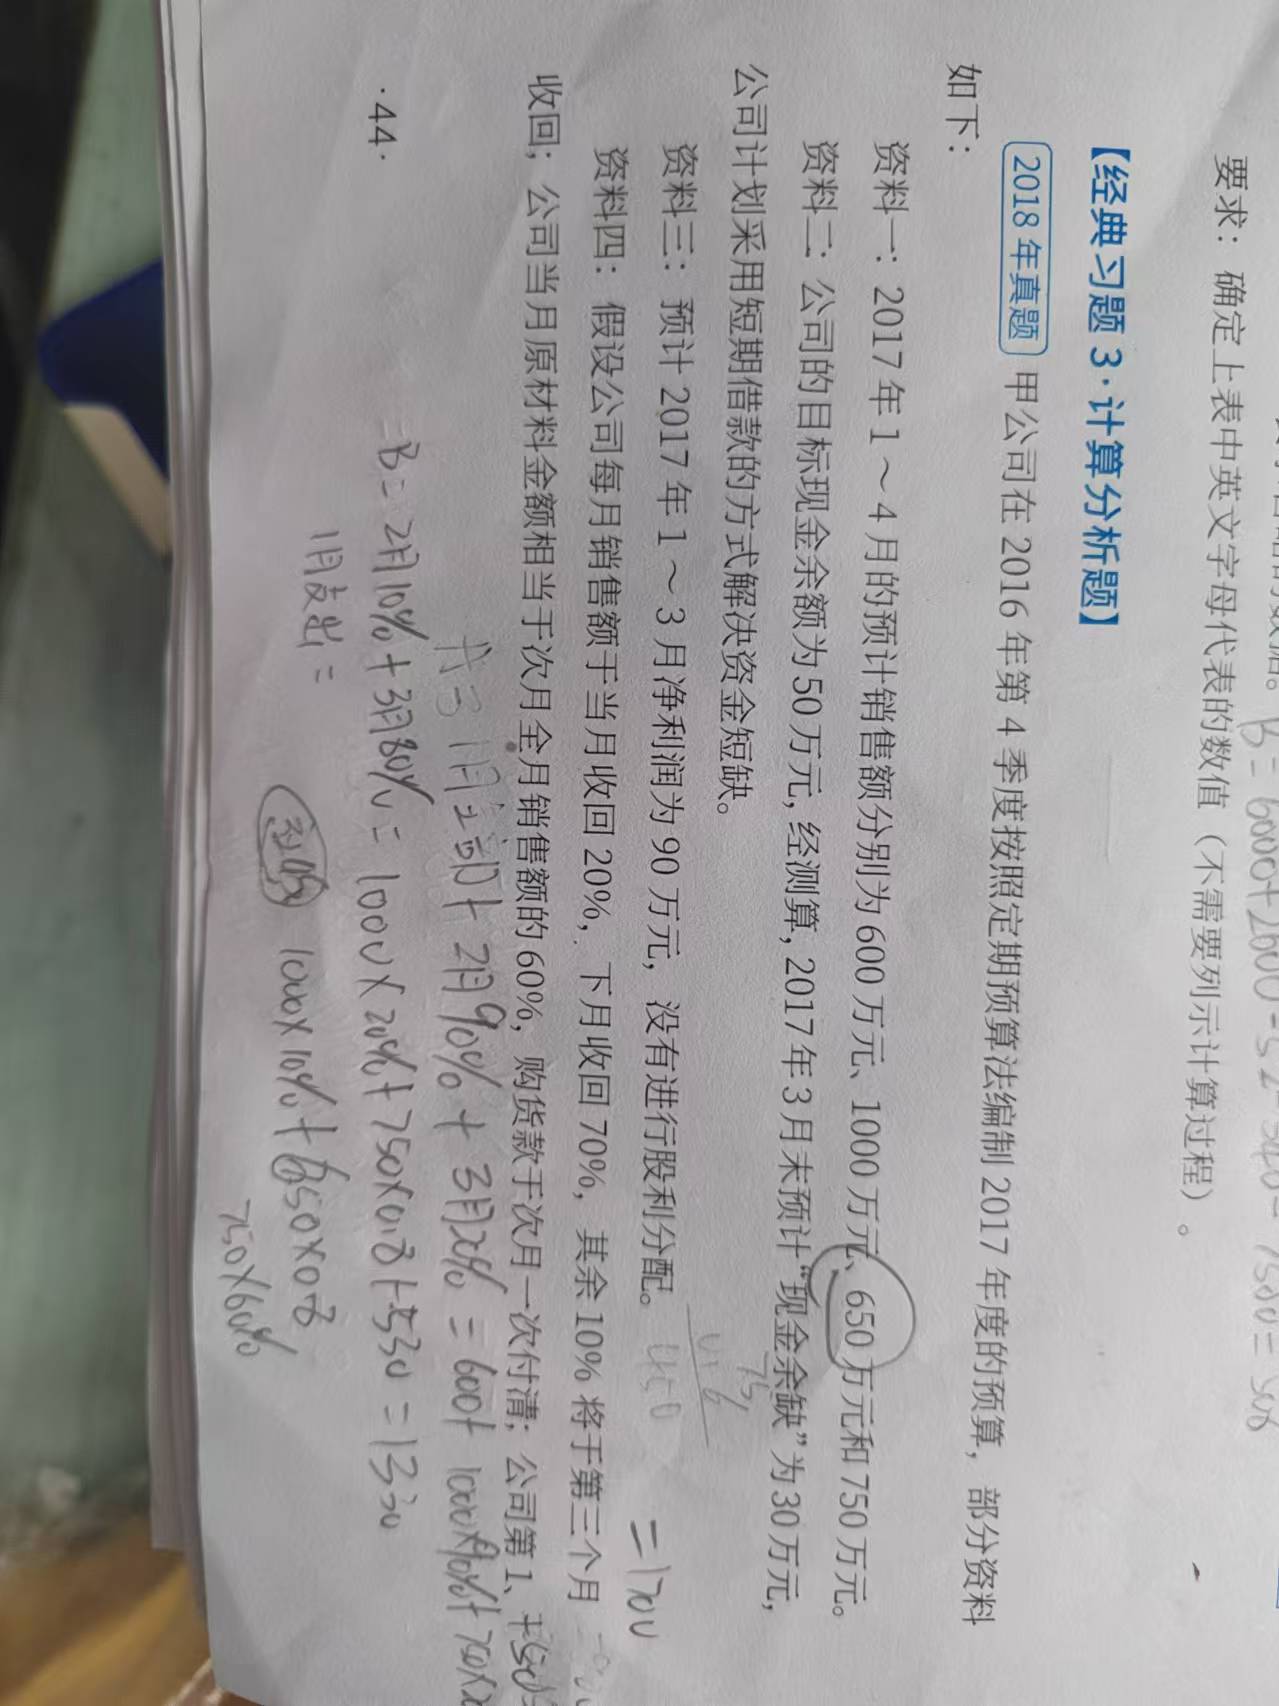 要求：确定上表中英文字母代表的数值（不需要列示计算过程）。
【经典习题 3·计算分析题】
2018 年真题 甲公司在 2016 年第 4 季度按照定期预算法编制 2017 年度的预算，部分资料
如下：
资料一：2017 年 1～4 月的预计销售额分别为 600 万元、1000 万元、650 万元和 750 万元。
资料二：公司的目标现金余额为 50 万元，经测算，2017 年 3 月末预计“现金余缺”为 30 万元，
公司计划采用短期借款的方式解决资金短缺。
资料三：预计 2017 年 1～3 月净利润为 90 万元，没有进行股利分配。
=1700
资料四：假设公司每月销售额于当月收回 20%，下月收回 70%，其余 10% 将于第三个月
收回；公司当月原材料金额相当于次月全月销售额的 60%，购货款于次月一次付清；公司第 1、
+ 2月90% + 3月20% = 600+ 1000×90%+
=B= 2月10%+3月80%= 1000×20%+750×0.8+530=1330
1月支出=
1000×10%+650×0.8
750×60%
·44·